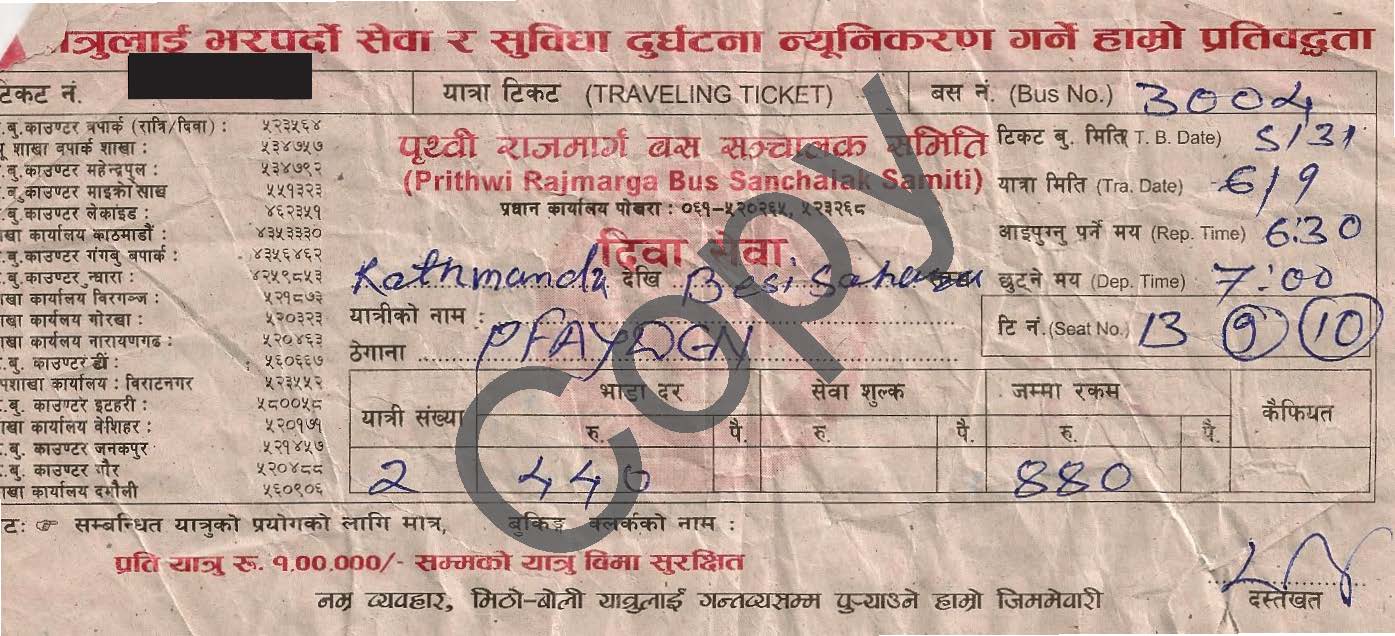 त्रुलाई भरपर्दो सेवा र सुविधा दुर्घटना न्यूनिकरण गर्ने हाम्रो प्रतिवद्धता
टिकट नं.
यात्रा टिकट (TRAVELING TICKET)
बस नं. (Bus No.) 3004
.बु.काउण्टर बपार्क (रात्रि/दिवा) : ५२३५६४
शाखा बपार्क शाखा : ५३४७५७
.बु.काउण्टर महेन्द्रपुल : ५३४७९२
५५१३२३
.बु.काउण्टर लेकाइड : ४६२३५१
खा कार्यालय काठमाडौं : ४३५३३३०
.बु.काउण्टर गंगबु बपार्क : ४३५६४६२
.बु.काउण्टर न्वारा : ४२५९८५३
शाखा कार्यालय विरगञ्ज : ५२१८७३
शाखा कार्यलय गोरखा : ५२०३२३
खा कार्यलय नारायणगढ : ५२०४६३
.बु. काउण्टर डाँ : ५६०६६७
पशाखा कार्यालय : बिराटनगर ५२३५५२
.बु. काउण्टर इटहरी : ५८००५८
खा कार्यालय बेशिहर : ५२०१७१
.बु. काउण्टर जनकपुर ५२१४५७
.बु. काउण्टर गौर ५२०४८८
खा कार्यालय दमौली ५६०९०६
पृथ्वी राजमार्ग बस सञ्चालक समिति
(Prithwi Rajmarga Bus Sanchalak Samiti)
प्रधान कार्यालय पोखरा : ०६१-५२०२६५, ५२३२६८
दिवा सेवा
Kathmandu देखि Besi Sahar
यात्रीको नाम :
ठेगाना
टिकट बु. मिति T. B. Date) 5/31
यात्रा मिति (Tra. Date) 6/9
आइपुग्नु पर्ने मय (Rep. Time) 6:30
छुट्ने मय (Dep. Time) 7:00
टि नं. (Seat No.) B 9 10
यात्री संख्या भाडा दर सेवा शुल्क जम्मा रकम कैफियत
रु. पै. रु. पै. रु. पै.
2 440 880
टः ☞ सम्बन्धित यात्रुको प्रयोगको लागि मात्र, बुकिङ्ग क्लर्कको नाम :
प्रति यात्रु रू. १,००,०००/- सम्मको यात्रु विमा सुरक्षित
नम्र व्यवहार, मिठो-बोली यात्रुलाई गन्तव्यसम्म पुर्‍याउने हाम्रो जिममेवारी
दस्तखत
Copy